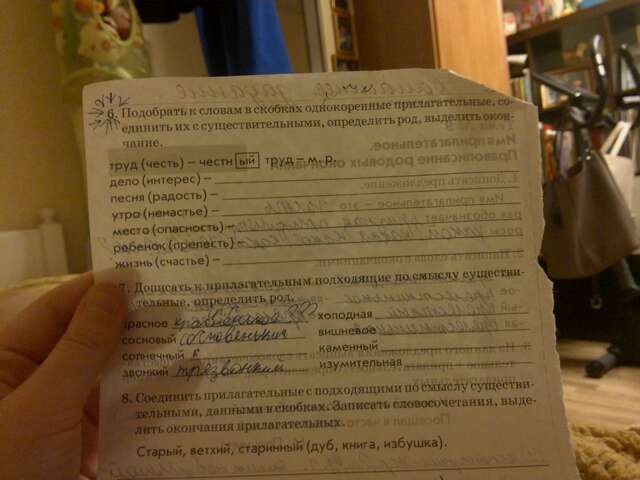 6. Подобрать к словам в скобках однокоренные прилагательные, со-
единить их с существительными, определить род, выделить окон-
чание.
труд (честь) – честн ый труд – м. р.
дело (интерес) –
песня (радость) –
утро (ненастье) –
место (опасность) –
ребенок (прелесть) –
жизнь (счастье) –
7. Дописать к прилагательным подходящие по смыслу существи-
тельные, определить род.
красное
холодная
сосновый
вишневое
солнечный
каменный
звонкий
изумительная
8. Соединить прилагательные с подходящими по смыслу существи-
тельными, данными в скобках. Записать словосочетания, выде-
лить окончания прилагательных.
Старый, ветхий, старинный (дуб, книга, избушка).